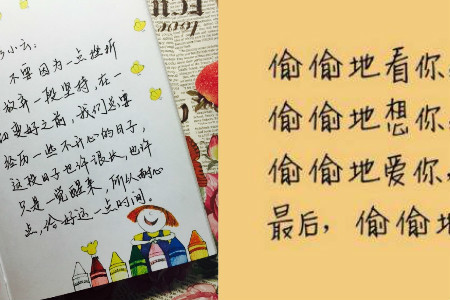 小云:
不要因为一点挫折
放弃一段坚持,在一
切变好之前,我们总要
经历一些不开心的日子,
这段日子也许很长,也许
只是一觉醒来,所以耐心
点,给好运一点时间。
偷偷地看你,
偷偷地想你,
偷偷地爱你,
最后,偷偷地